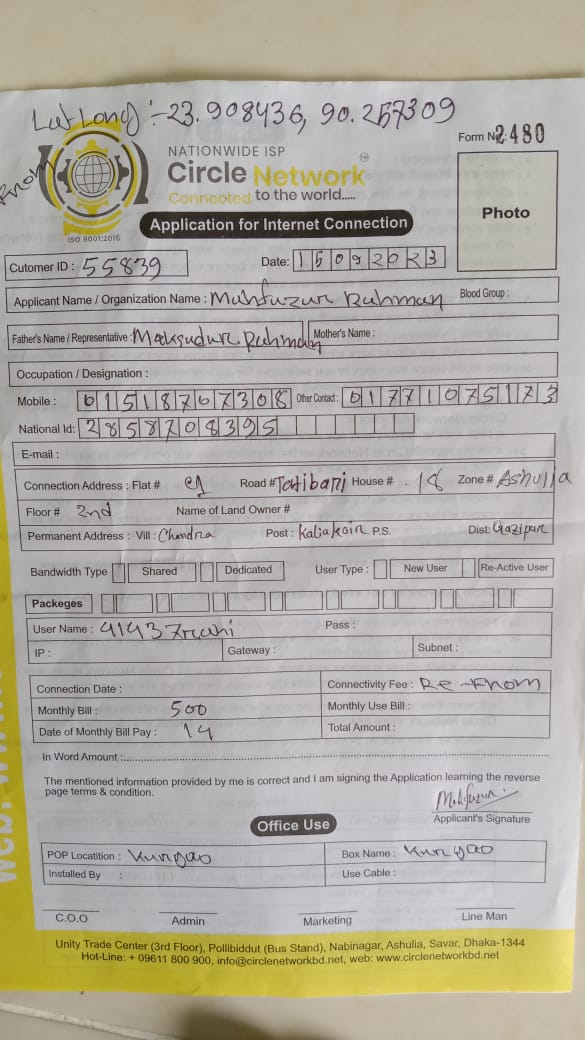 Lat Long :- 23.908436, 90.257309
From
Form No: 2480
NATIONWIDE ISP
Circle Network TM
Connected to the world.....
ISO 9001:2015
Application for Internet Connection
Photo
Cutomer ID : 55839
Date: 15092023
Applicant Name / Organization Name : Mahfuzur Rahman Blood Group :
Father's Name / Representative : Maksudur Rahman Mother's Name :
Occupation / Designation :
Mobile : 01518767308 Other Contact : 01771075173
National Id: 2858708395
E-mail :
Connection Address : Flat # Road # House # 18 Zone # Ashulia
Floor # 2nd Name of Land Owner #
Permanent Address : Vill : Chandra Post : Kaliakoir P.S. Dist: Gazipur
Bandwidth Type Shared Dedicated User Type : New User Re-Active User
Packeges
User Name : Pass :
IP : Gateway : Subnet :
Connection Date : Connectivity Fee : Re-From
Monthly Bill : 500 Monthly Use Bill :
Date of Monthly Bill Pay : 14 Total Amount :
In Word Amount :
The mentioned information provided by me is correct and I am signing the Application learning the reverse
page terms & condition.
Mahfuzur
Applicant's Signature
Office Use
POP Locatition : Kungao Box Name : Kungao
Installed By : Use Cable :
C.O.O Admin Marketing Line Man
Unity Trade Center (3rd Floor), Pollibiddut (Bus Stand), Nabinagar, Ashulia, Savar, Dhaka-1344
Hot-Line: + 09611 800 900, info@circlenetworkbd.net, web: www.circlenetworkbd.net